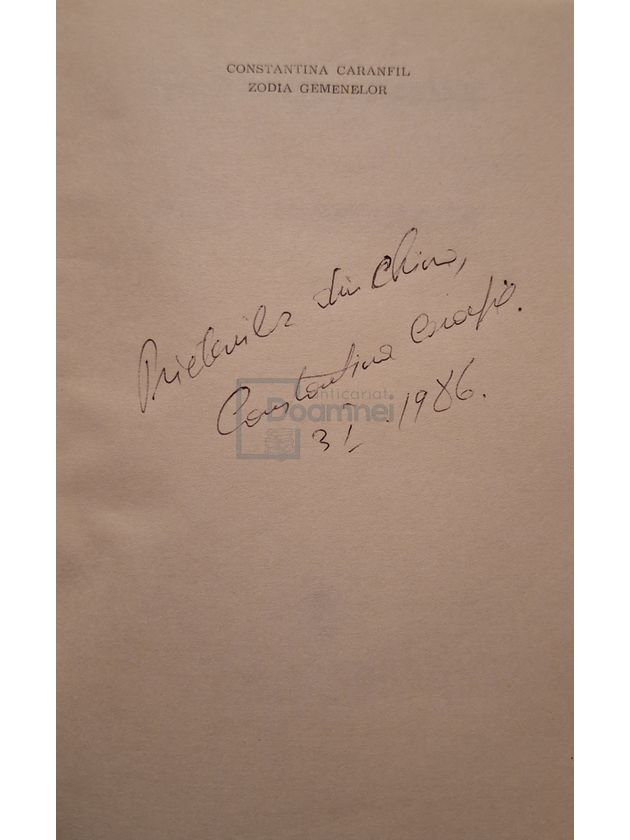 CONSTANTINA CARANFIL
ZODIA GEMENELOR
Prietenilor din China,
Constantina Caranfil.
3 I .1986.
anticariat
Doamnei